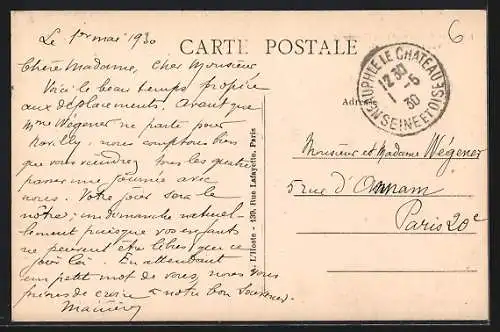 Le 1er mai 1930
CARTE POSTALE
Chère Madame, Cher Monsieur
Voici le beau temps propice
aux déplacements. Avant que
Mme Wégener ne parte pour
nous comptons bien
que vous viendrez tous les quatre
passer une journée avec
nous. Votre jour sera le
nôtre ; un dimanche naturel-
lement puisque vos enfants
ne peuvent être libres que ce
jour là. En attendant
un petit mot de vous, nous vous
prions de croire à notre bon souvenir.
A. L'Hoste - 139, Rue Lafayette, Paris
NEAUPHLE LE CHATEAU
12 30
1-5
30
SEINE ET OISE
Adresse
6
Monsieur et Madame Wégener
5 rue d'Annam
Paris 20e